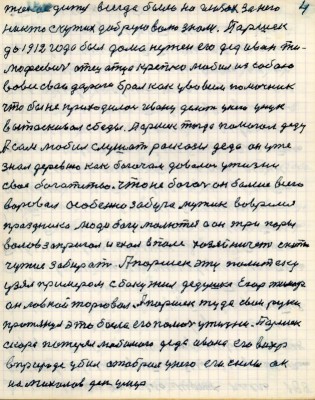 4
всегда была на
никто скупих добрую волю знал. Паршек
до 1912 года был дома нужен его дед иван ти-
мофеевич отец отца крепко любил из собаго
вовси свои дараго брал как уже вем помочник
что бы не приходилос ивану делит унего унук
вытаскивал сбеды. Паршек тогда помогал деду
А сам любил слушат расказы деда он уже
знал деревню как богачам довалос ужизни
свое богатство. Что не богач он более всего
воровал особенно забуча мужик вовремя
праздника люди богу молютця а он три пары
волов запрягал и ехал в поле хозяйнычет скот
чужие забират. А паршек эту политеку
узял примером сбоку жил дедушка Егор
он ловкой торговал. А паршек туда свои руки
протянул это была его помоч ужизни. Паршек
скора потерял любимого деда ивана его вихр
вприроде убил отобрал унего его силы он
на миколов ден умир